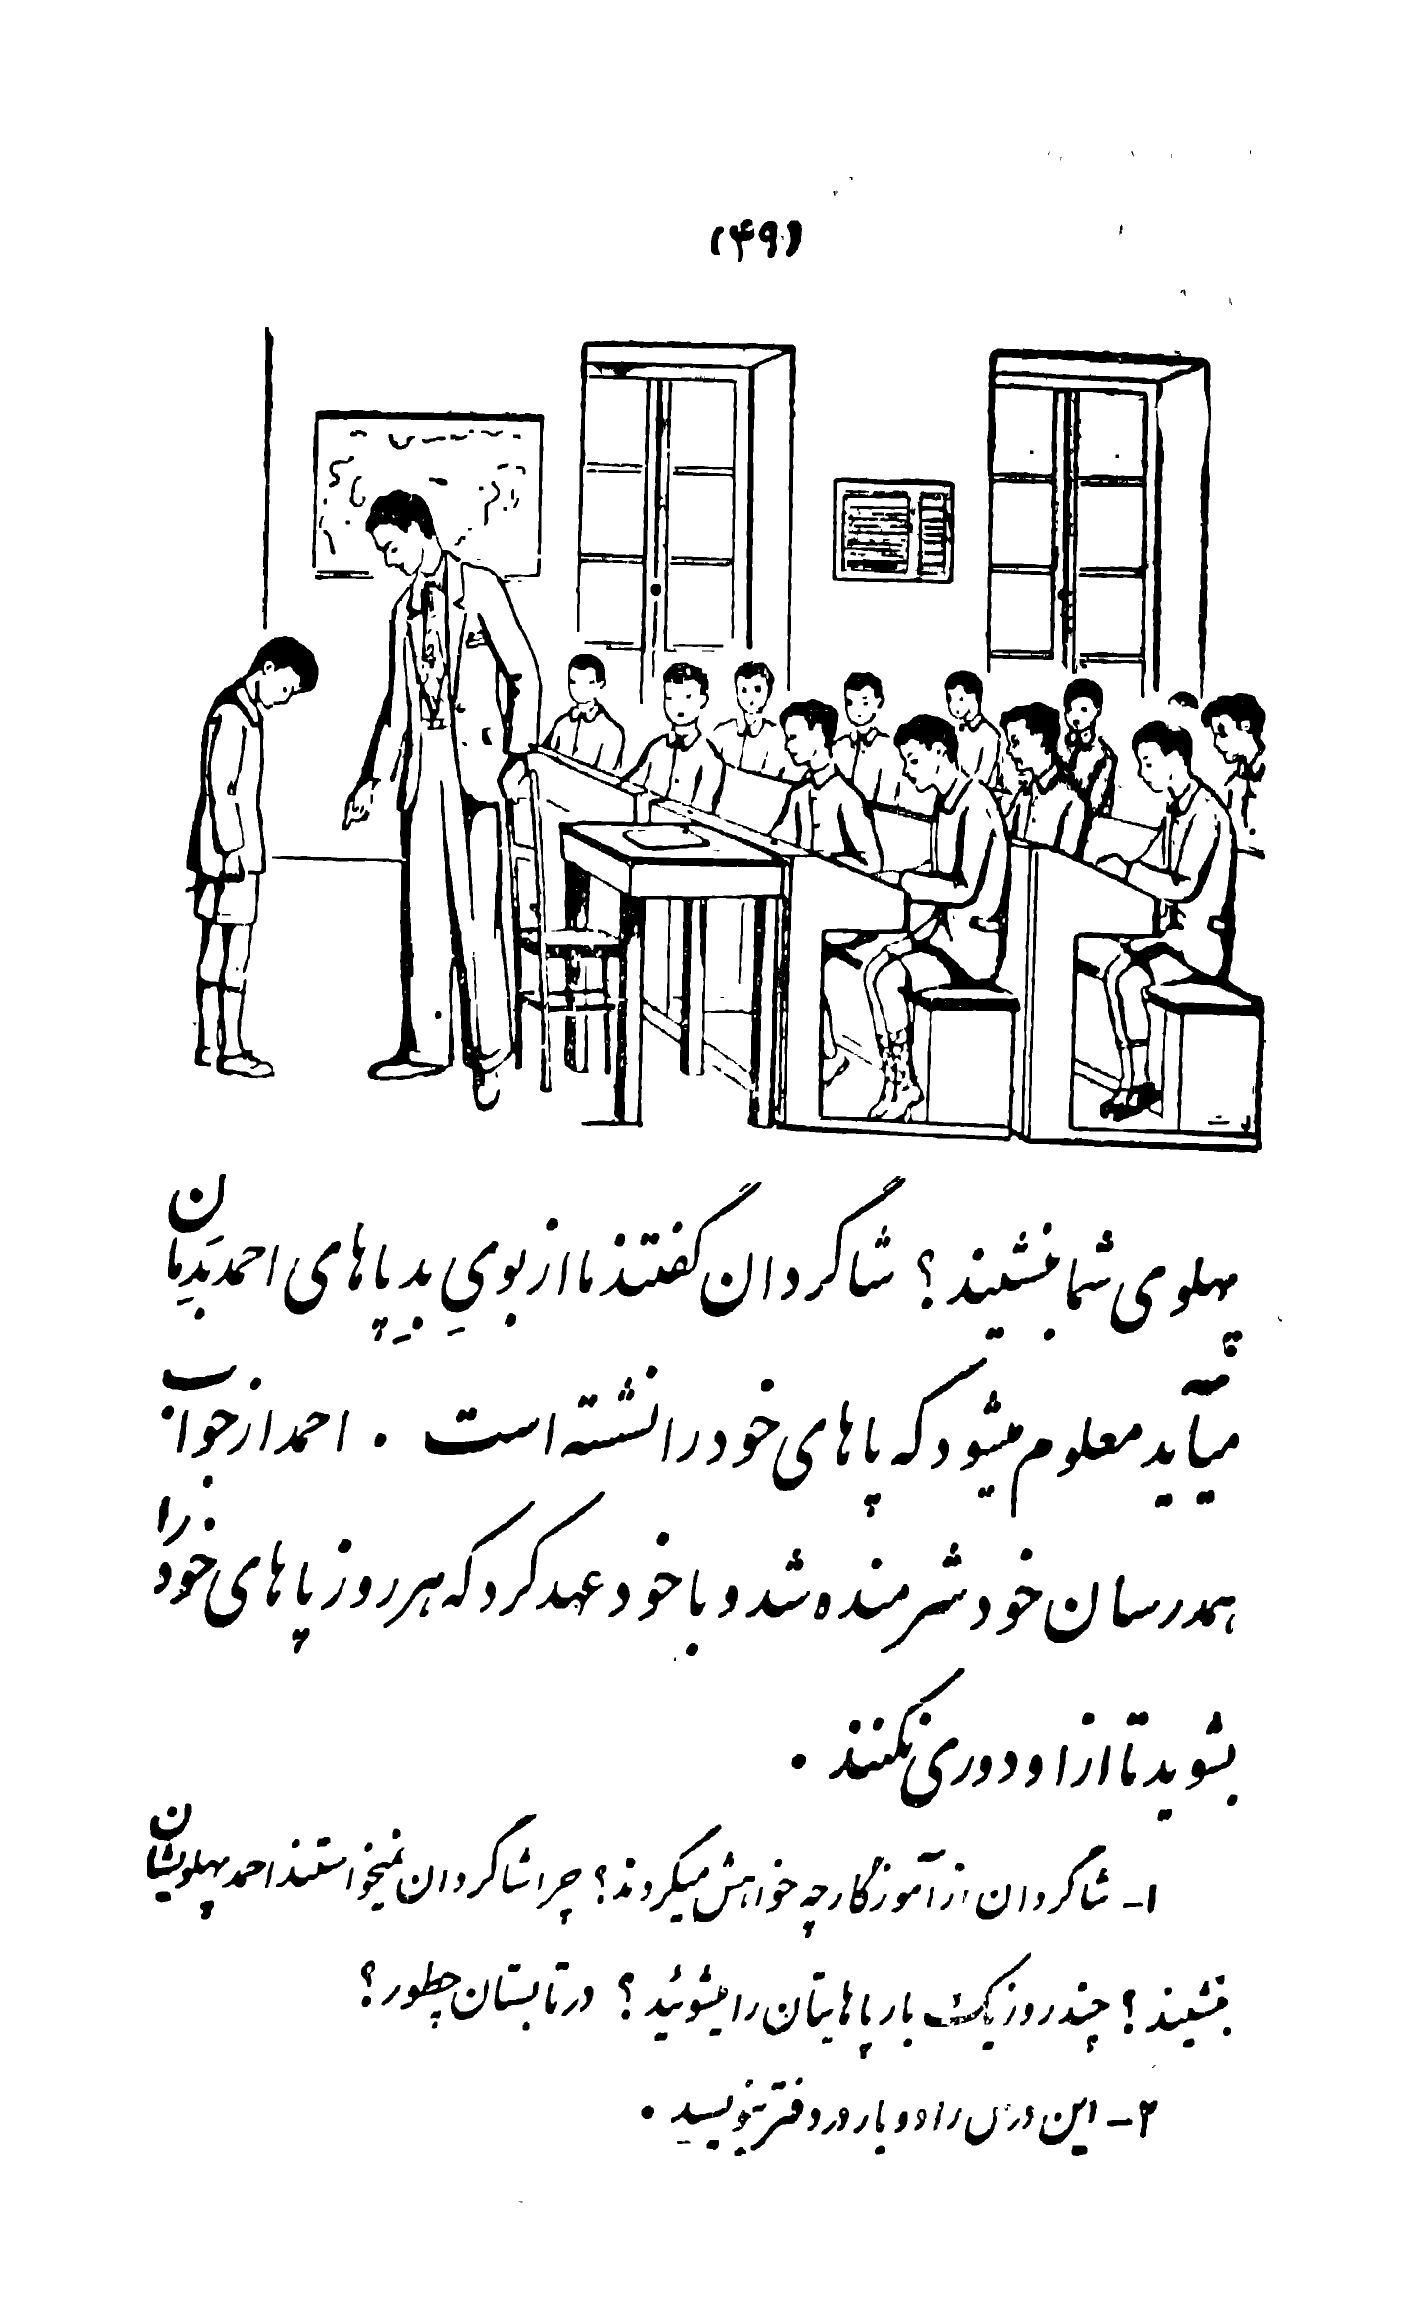 (۴۹)
پهلوی شما بنشیند؟ شاگردان گفتند ما از بویِ بدِ پاهای احمد بَدِمان
میآید معلوم میشود که پاهای خود را نشسته است . احمد از جواب
همدرسان خود شرمنده شد و با خود عهد کرد که هر روز پاهای خود را
بشوید تا از او دوری نکنند .
۱- شاگردان از آموزگار چه خواهش میکردند؟ چرا شاگردان نمیخواستند احمد پهلویشان
بنشیند؟ چند روز یک بار پاهایتان را میشوئید؟ در تابستان چطور؟
۲- این درس را دو بار در دفتر بنویسید .